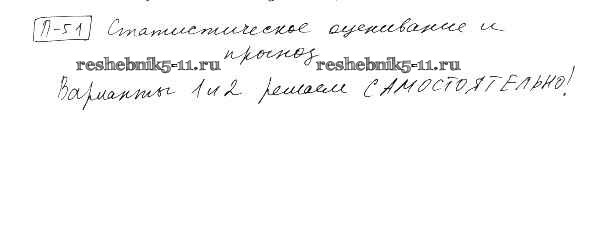 П-51 Статистическое оценивание и
прогноз
reshebnik5-11.ru reshebnik5-11.ru
Варианты 1 и 2 решаем САМОСТОЯТЕЛЬНО!